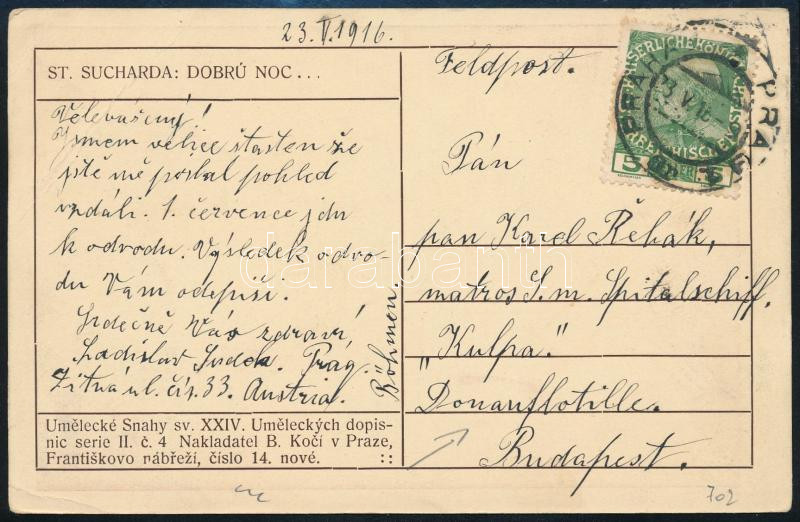 23. V. 1916.
ST. SUCHARDA: DOBRÚ NOC...
Velevážený!
Jsmem velice šťasten že
jste mě poslal pohled
vzdáli. 1. července jdu
k odvodu. Výsledek odvo-
du Vám odepíši.
Srdečně Vás zdraví,
Ladislav Prag
Žitná ul. čís. 33. Austria.
Böhmen.
Umělecké Snahy sv. XXIV. Uměleckých dopis-
nic serie II. č. 4 Nakladatel B. Kočí v Praze,
Františkovo nábřeží, číslo 14. nové. ::
Feldpost.
Pán
pan Karel Řehák,
matros S. m. Spitalschiff,
„Kulpa."
Donauflotille.
Budapest.
702
PRAG
PRAHA
23 V 16
5 5
darabanth